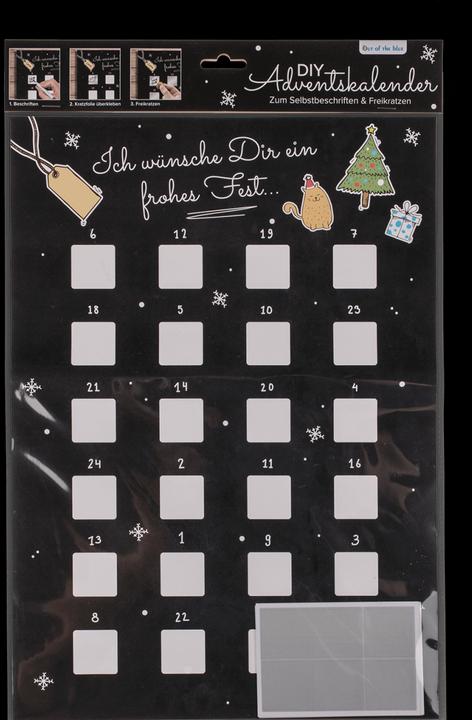 Out of the blue
DIY
Adventskalender
Zum Selbstbeschriften & Freikratzen
1. Beschriften
2. Kratzfolie überkleben
3. Freikratzen
Ich wünsche Dir ein
frohes Fest...
6 12 19 7
18 5 10 23
21 14 20 4
24 2 11 16
13 1 9 3
8 22